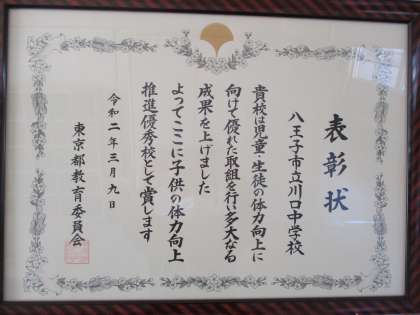 表彰状
八王子市立川口中学校
貴校は児童・生徒の体力向上に
向けて優れた取組を行い多大なる
成果を上げました
よってここに子供の体力向上
推進優秀校として賞します
令和二年三月九日
東京都教育委員会